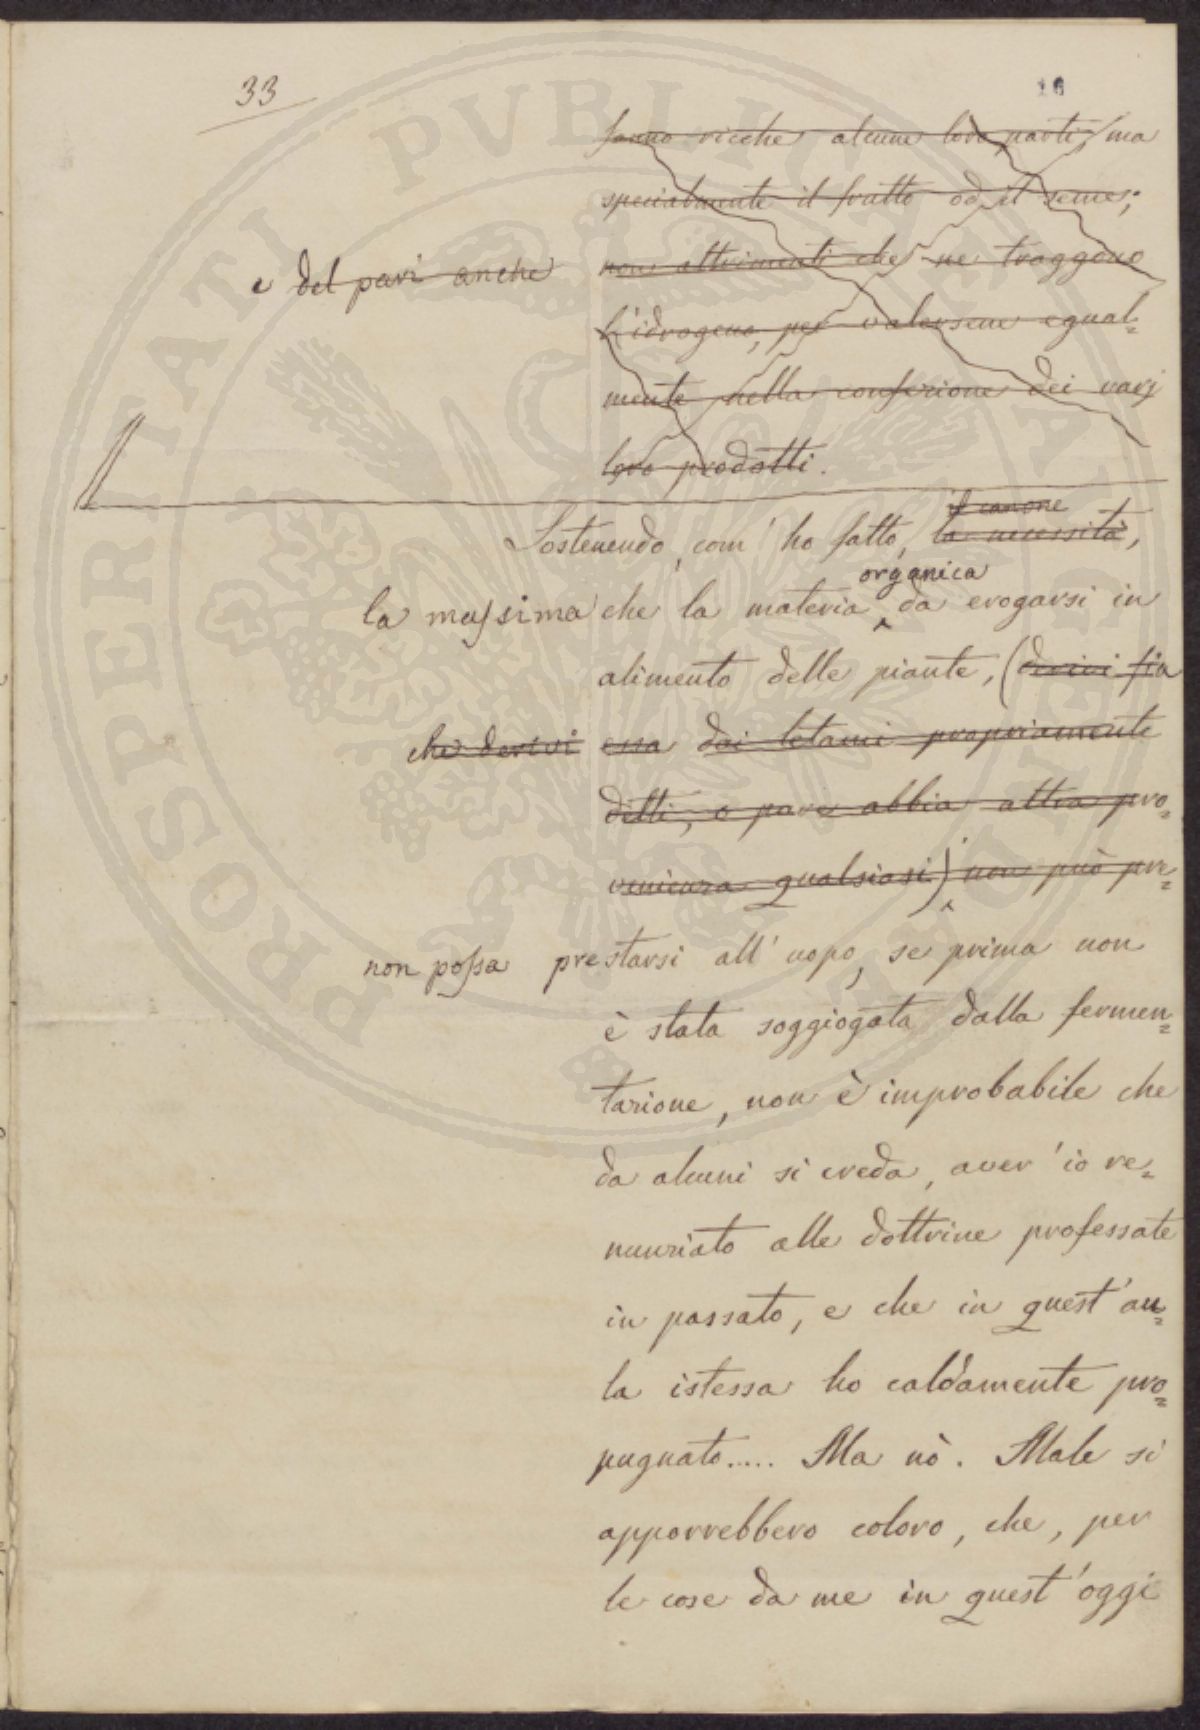 33
16
fanno ricche alcune loro parti, ma
specialmente il frutto od il seme;
e del pari anche non altrimenti che ne traggono
l'idrogeno, per valersene egual=
mente nella confezione dei varj
loro prodotti.
il canone
Sostenendo, com' ho fatto, la necessità,
organica
la massima che la materia da erogarsi in
alimento delle piante, (derivi sia
che derivi essa dai letami propriamente
ditti, o pure abbia altra pro=
venienza qualsiasi) non può pre=
non possa prestarsi all' uopo, se prima non
è stata soggiogata dalla fermen=
tazione, non è improbabile che
da alcuni si creda, aver' io re=
nunziato alle dottrine professate
in passato, e che in quest' au=
la istessa ho caldamente pro=
pugnato..... Ma nò. Male si
apporrebbero coloro, che, per
le cose da me in quest' oggi
PROSPERITATI PVBLICAE